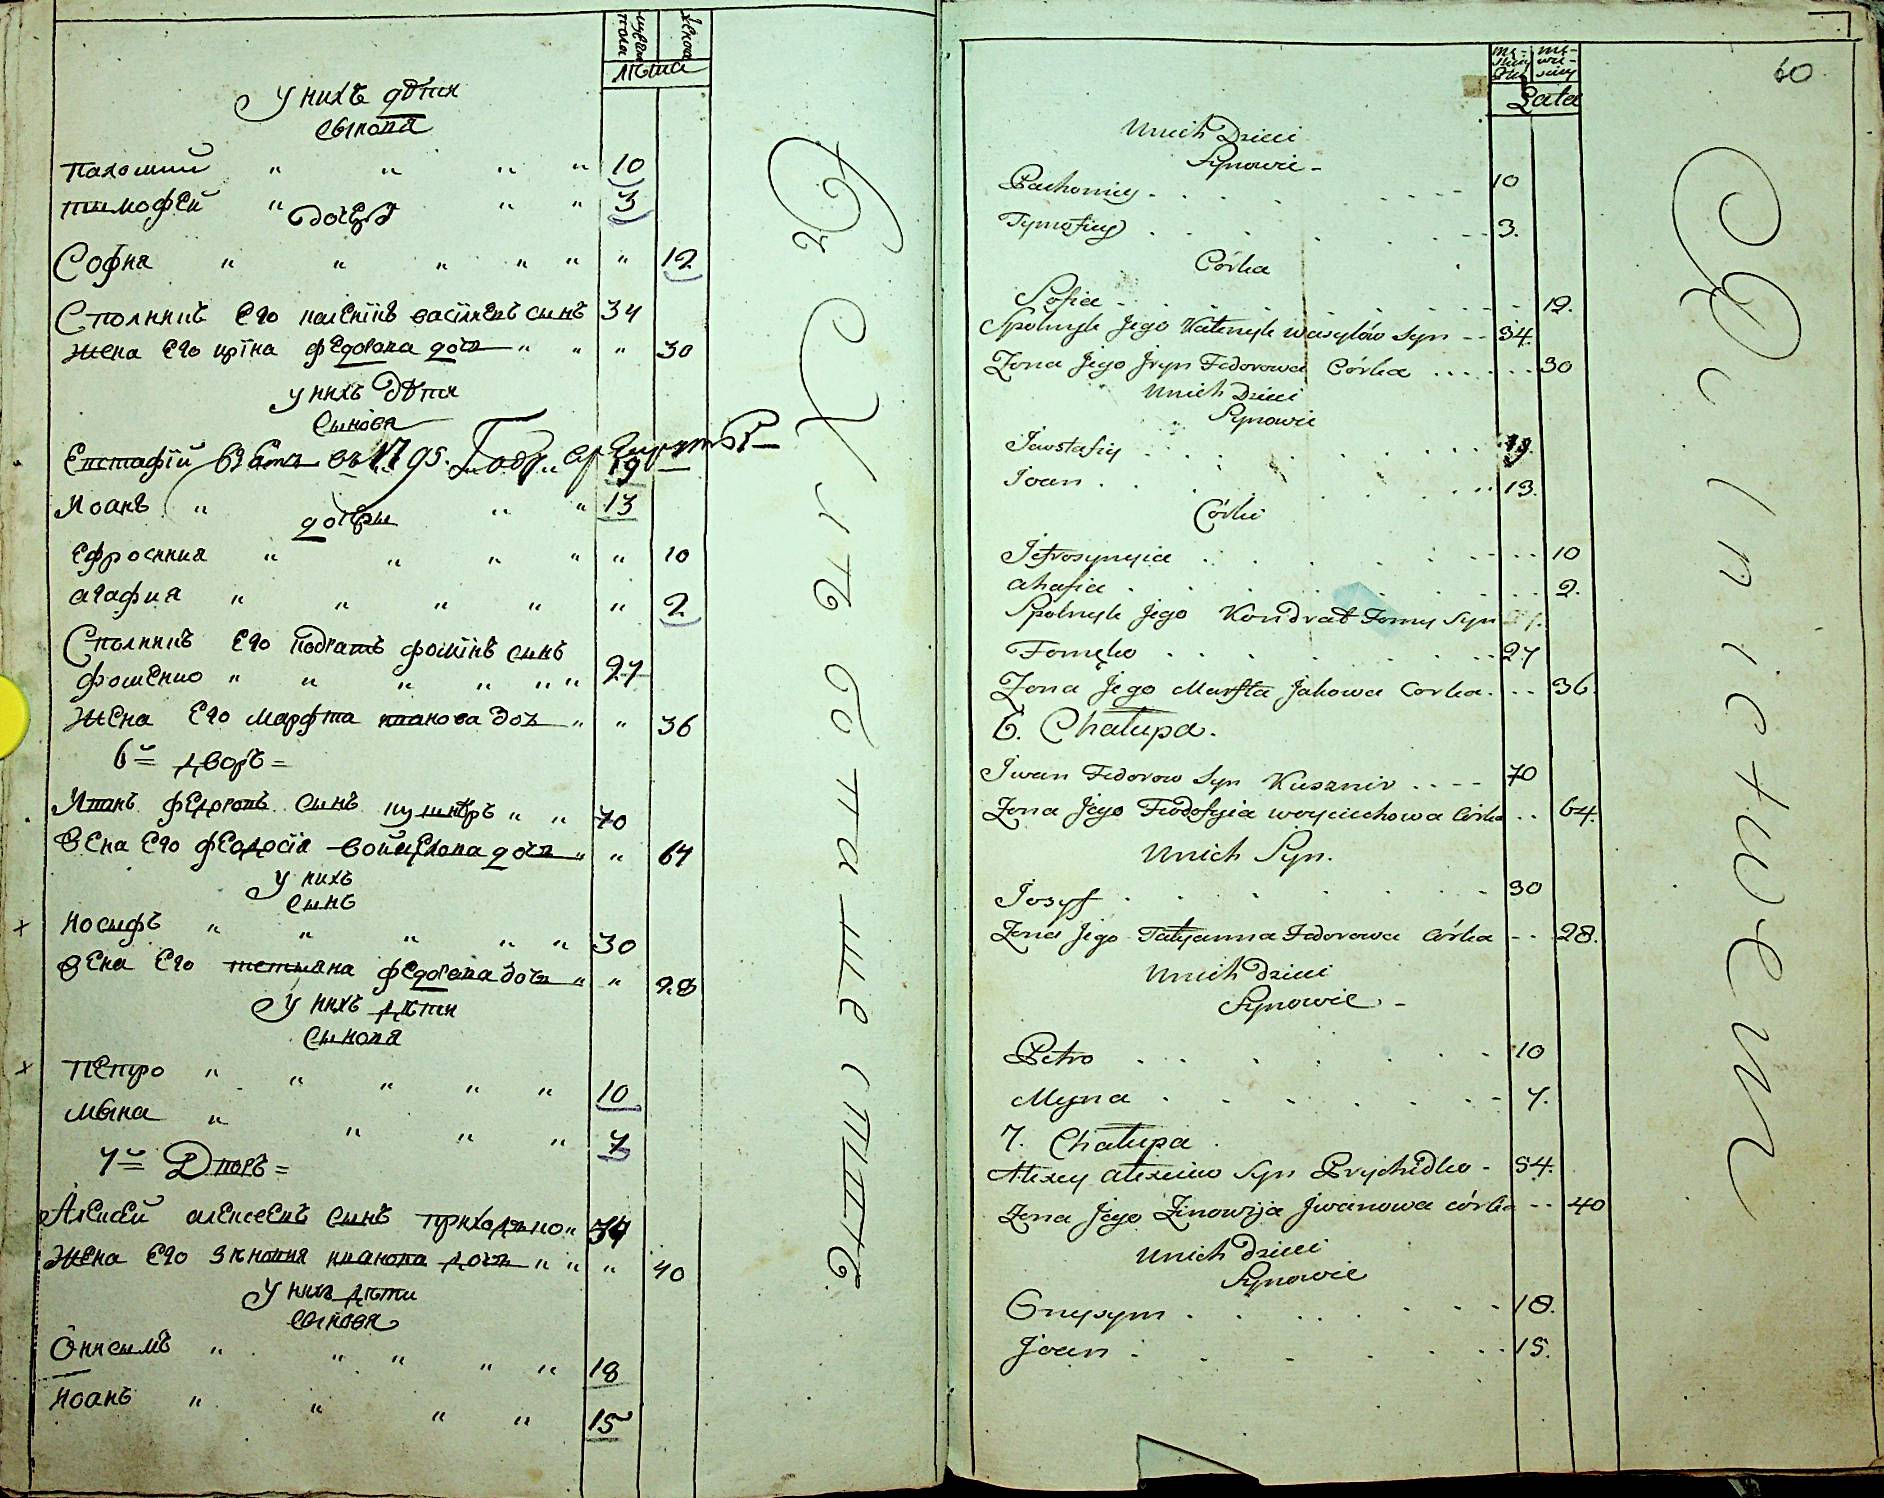 мужеска пола
женска
лѣта
У нихъ дѣти
сынова
Пахомий " " " " 10
Тимофей " " " 3
дочер
София " " " " " " 12
Сполникъ его каленикъ василевъ синъ 34
жена его ирїна федорова дочь " " " 30
у нихъ дѣти
синова
Евстафїй въ 1795. Годѵ 19
Иоанъ " " " 13
дочери
Ефросиния " " " " " 10
агафия " " " " " 2
Сполникъ его кодратъ фомїнъ синъ
фоменко " " " " " " 27
жена его марфта иванова дочь " " 36
6й дворъ =
Иванъ федоровъ синъ кушнѣръ " " 70
жена его феодосїя войцехова дочь " " 64
у нихъ
синъ
Иосифъ " " " " " 30
жена его тетияна федорова дочь " " 28
У нихъ дѣти
синова
Петро " " " " " 10
мина " " " " 7
7й Дворъ =
Алексей алексеевъ синъ приходько " 54
жена его зѣновия иванова дочь " " " 40
У нихъ дѣти
синова
Онисимъ " " " " " 18
Иоанъ " " " " 15
60
Lata
Unich Dzieci
Synowie -
Pachomiy 10
Tymofiey 3.
Córka
Sofia 12.
Spolnyk Jego Kalenyk wasylów Syn 34.
Zona Jego Jryn Fedorowa Córka 30
Unich Dzieci
Synowie
Jewstafiy 19.
Joan 13.
Córki
Jefrosyniia 10
ahafia 2.
Spolnyk Jego Kondrat Fomy Syn
Fomęko 27
Zona Jego Marfta Jakowa Corka 36.
6. Chałupa.
Jwan Fedorow Syn Kusznir 70
Zona Jego Fiodosyia woyciechowa Córka 64.
Unich Syn.
Josyf 30
Zona Jego Tatyanna Fedorowa Córka 28.
Unich dzieci
Synowie -
Petro 10
Myna 7.
7. Chałupa
Alexey alexiiow Syn Prychidko - 54.
Zona Jego Zinowija Jwanowa córka 40
Unich dzieci
Synowie
Onysym 18.
Joan 15.